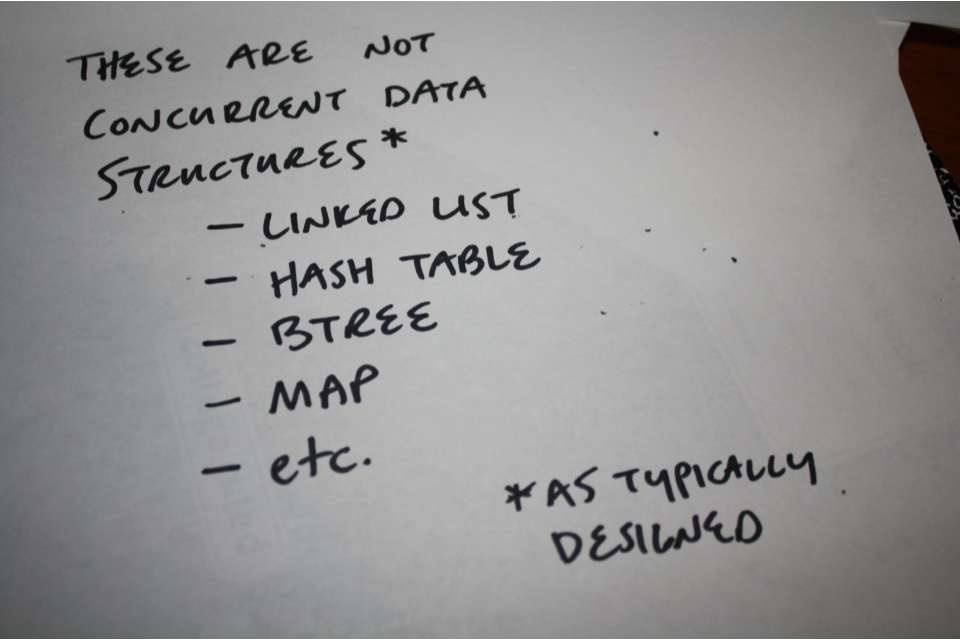 THESE ARE NOT
CONCURRENT DATA
STRUCTURES*
- LINKED LIST
- HASH TABLE
- BTREE
- MAP
- etc.
*AS TYPICALLY
DESIGNED